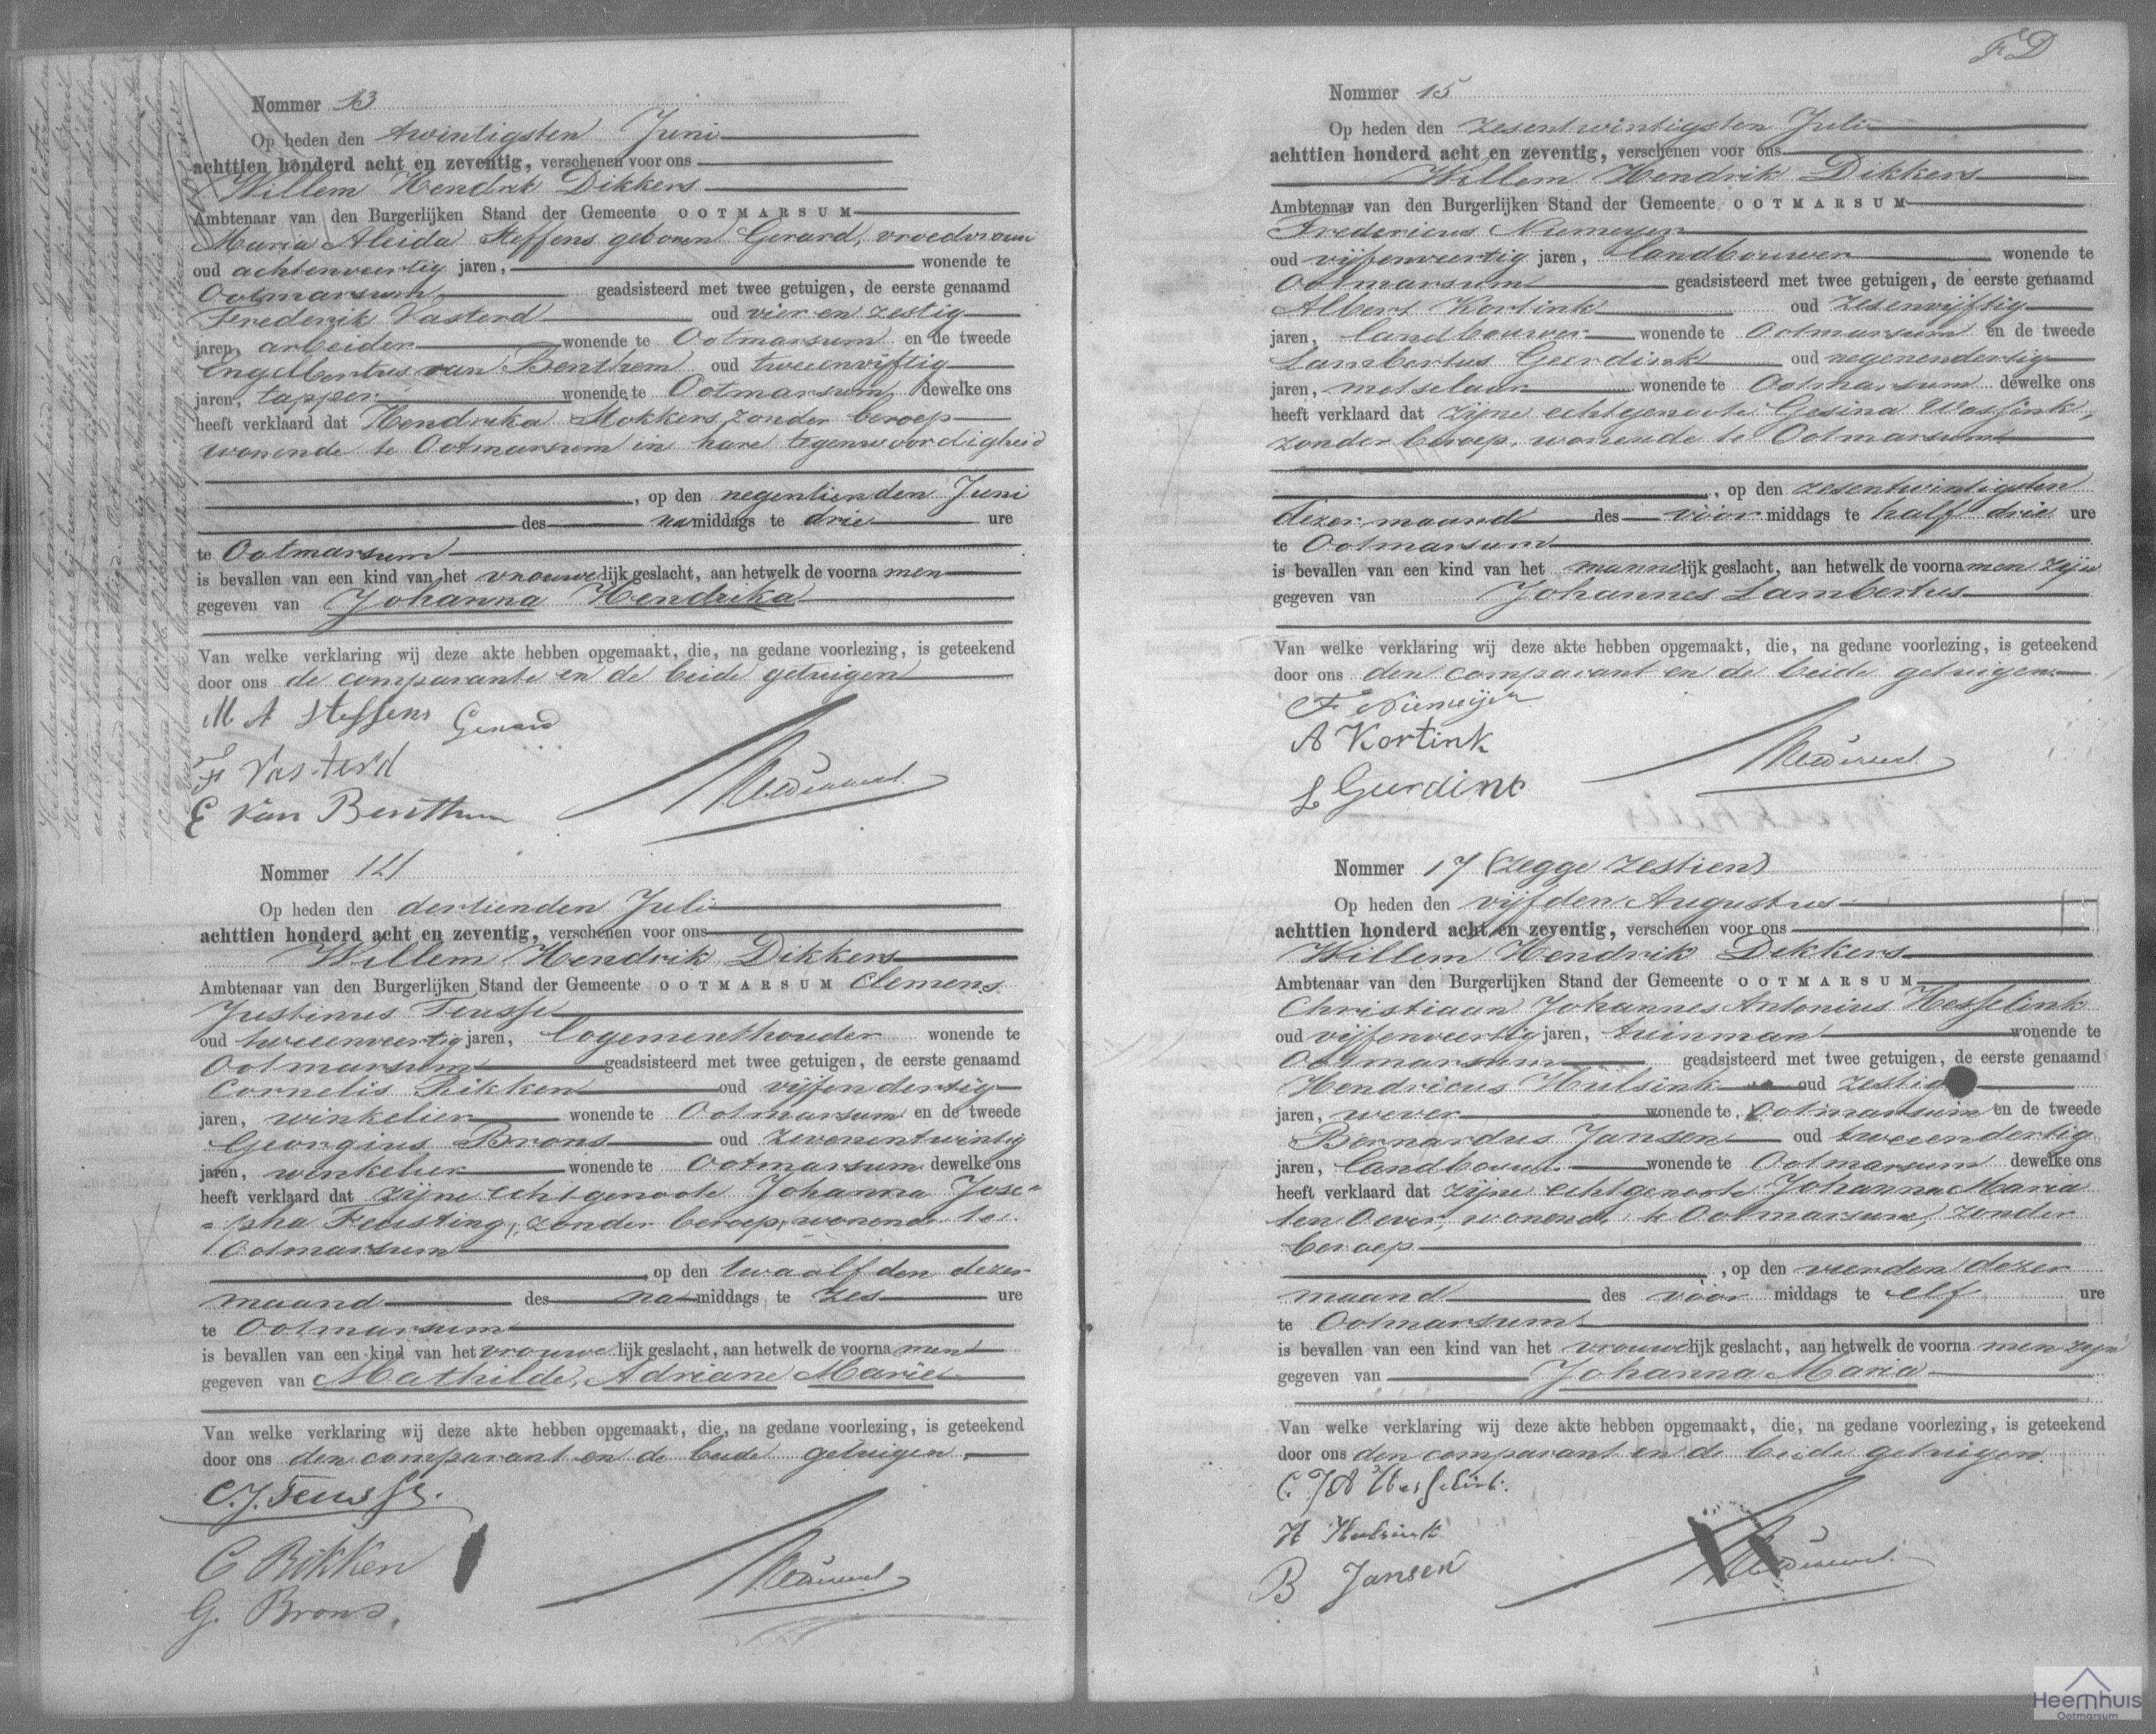 Nommer 13
Op heden den twintigsten Juni
achttien honderd acht en zeventig, verschenen voor ons
Willem Hendrik Dikkers
Ambtenaar van den Burgerlijken Stand der Gemeente OOTMARSUM
Maria Aleida Steffens geboren Gerard, vroedvrouw
oud achtenveertig jaren, wonende te
Ootmarsum geadsisteerd met twee getuigen, de eerste genaamd
Frederik Vasterd oud vier en zestig
jaren, arbeider wonende te Ootmarsum en de tweede
Engelbertus van Benthem oud tweeenvijftig
jaren, tapper wonende te Ootmarsum, dewelke ons
heeft verklaard dat Hendrika Mokkers zonder beroep
wonende te Ootmarsum in hare tegenwoordigheid
, op den negentienden Juni
des namiddags te drie ure
te Ootmarsum
is bevallen van een kind van het vrouwelijk geslacht, aan hetwelk de voornamen
gegeven van Johanna Hendrika
Van welke verklaring wij deze akte hebben opgemaakt, die, na gedane voorlezing, is geteekend
door ons de comparante en de beide getuigen
M A Steffens Gerard
F Vasterd
E van Benthem
Nommer 14
Op heden den dertienden Juli
achttien honderd acht en zeventig, verschenen voor ons
Willem Hendrik Dikkers
Ambtenaar van den Burgerlijken Stand der Gemeente OOTMARSUM Clemens
Justinus Feusse
oud tweeenveertig jaren, logementhouder wonende te
Ootmarsum geadsisteerd met twee getuigen, de eerste genaamd
Cornelis Rikken oud vijfendertig
jaren, winkelier wonende te Ootmarsum en de tweede
Georgius Brons oud zevenentwintig
jaren, winkelier wonende te Ootmarsum dewelke ons
heeft verklaard dat zijne echtgenoote Johanna Jose=
=pha Feusting, zonder beroep, wonende te
Ootmarsum
, op den twaalfden dezer
maand des na middags te zes ure
te Ootmarsum
is bevallen van een kind van het vrouwelijk geslacht, aan hetwelk de voornamen
gegeven van Mathilde, Adriane Marie
Van welke verklaring wij deze akte hebben opgemaakt, die, na gedane voorlezing, is geteekend
door ons den comparant en de beide getuigen,
C.J. Feusse.
C Rikken
G. Brons.
Nommer 15
Op heden den zesentwintigsten Juli
achttien honderd acht en zeventig, verschenen voor ons
Willem Hendrik Dikkers
Ambtenaar van den Burgerlijken Stand der Gemeente OOTMARSUM
Fredericus Niemeyer
oud vijfenveertig jaren, landbouwer wonende te
Ootmarsum geadsisteerd met twee getuigen, de eerste genaamd
Albert Kortink oud zesenvijftig
jaren, landbouwer wonende te Ootmarsum en de tweede
Lambertus Geerdink oud negenendertig
jaren, metselaar wonende te Ootmarsum dewelke ons
heeft verklaard dat zijne echtgenoote Gesina Wassink,
zonder beroep, wonende te Ootmarsum
, op den zesentwintigsten
dezer maand des voor middags te half drie ure
te Ootmarsum
is bevallen van een kind van het mannelijk geslacht, aan hetwelk de voornamen zijn
gegeven van Johannes Lambertus
Van welke verklaring wij deze akte hebben opgemaakt, die, na gedane voorlezing, is geteekend
door ons den comparant en de beide getuigen
F Niemeijer
A Kortink
L Geerdink
Nommer 17 (zegge zestien)
Op heden den vijfden Augustus
achttien honderd acht en zeventig, verschenen voor ons
Willem Hendrik Dikkers
Ambtenaar van den Burgerlijken Stand der Gemeente OOTMARSUM
Christiaan Johannes Antonius Hesselink
oud vijfenveertig jaren, tuinman wonende te
Ootmarsum geadsisteerd met twee getuigen, de eerste genaamd
Hendricus Hulsink oud zestig
jaren, wever wonende te Ootmarsum en de tweede
Bernardus Jansen oud tweeendertig
jaren, landbouwer wonende te Ootmarsum dewelke ons
heeft verklaard dat zijne echtgenoote Johanna Maria
ten Oever, wonende te Ootmarsum, zonder
beroep
, op den vierden dezer
maand des voor middags te elf ure
te Ootmarsum
is bevallen van een kind van het vrouwelijk geslacht, aan hetwelk de voornamen zijn
gegeven van Johanna Maria
Van welke verklaring wij deze akte hebben opgemaakt, die, na gedane voorlezing, is geteekend
door ons den comparant en de beide getuigen.
C. J A Hesselink.
H Hulsink
B Jansen
Heemhuis
Ootmarsum